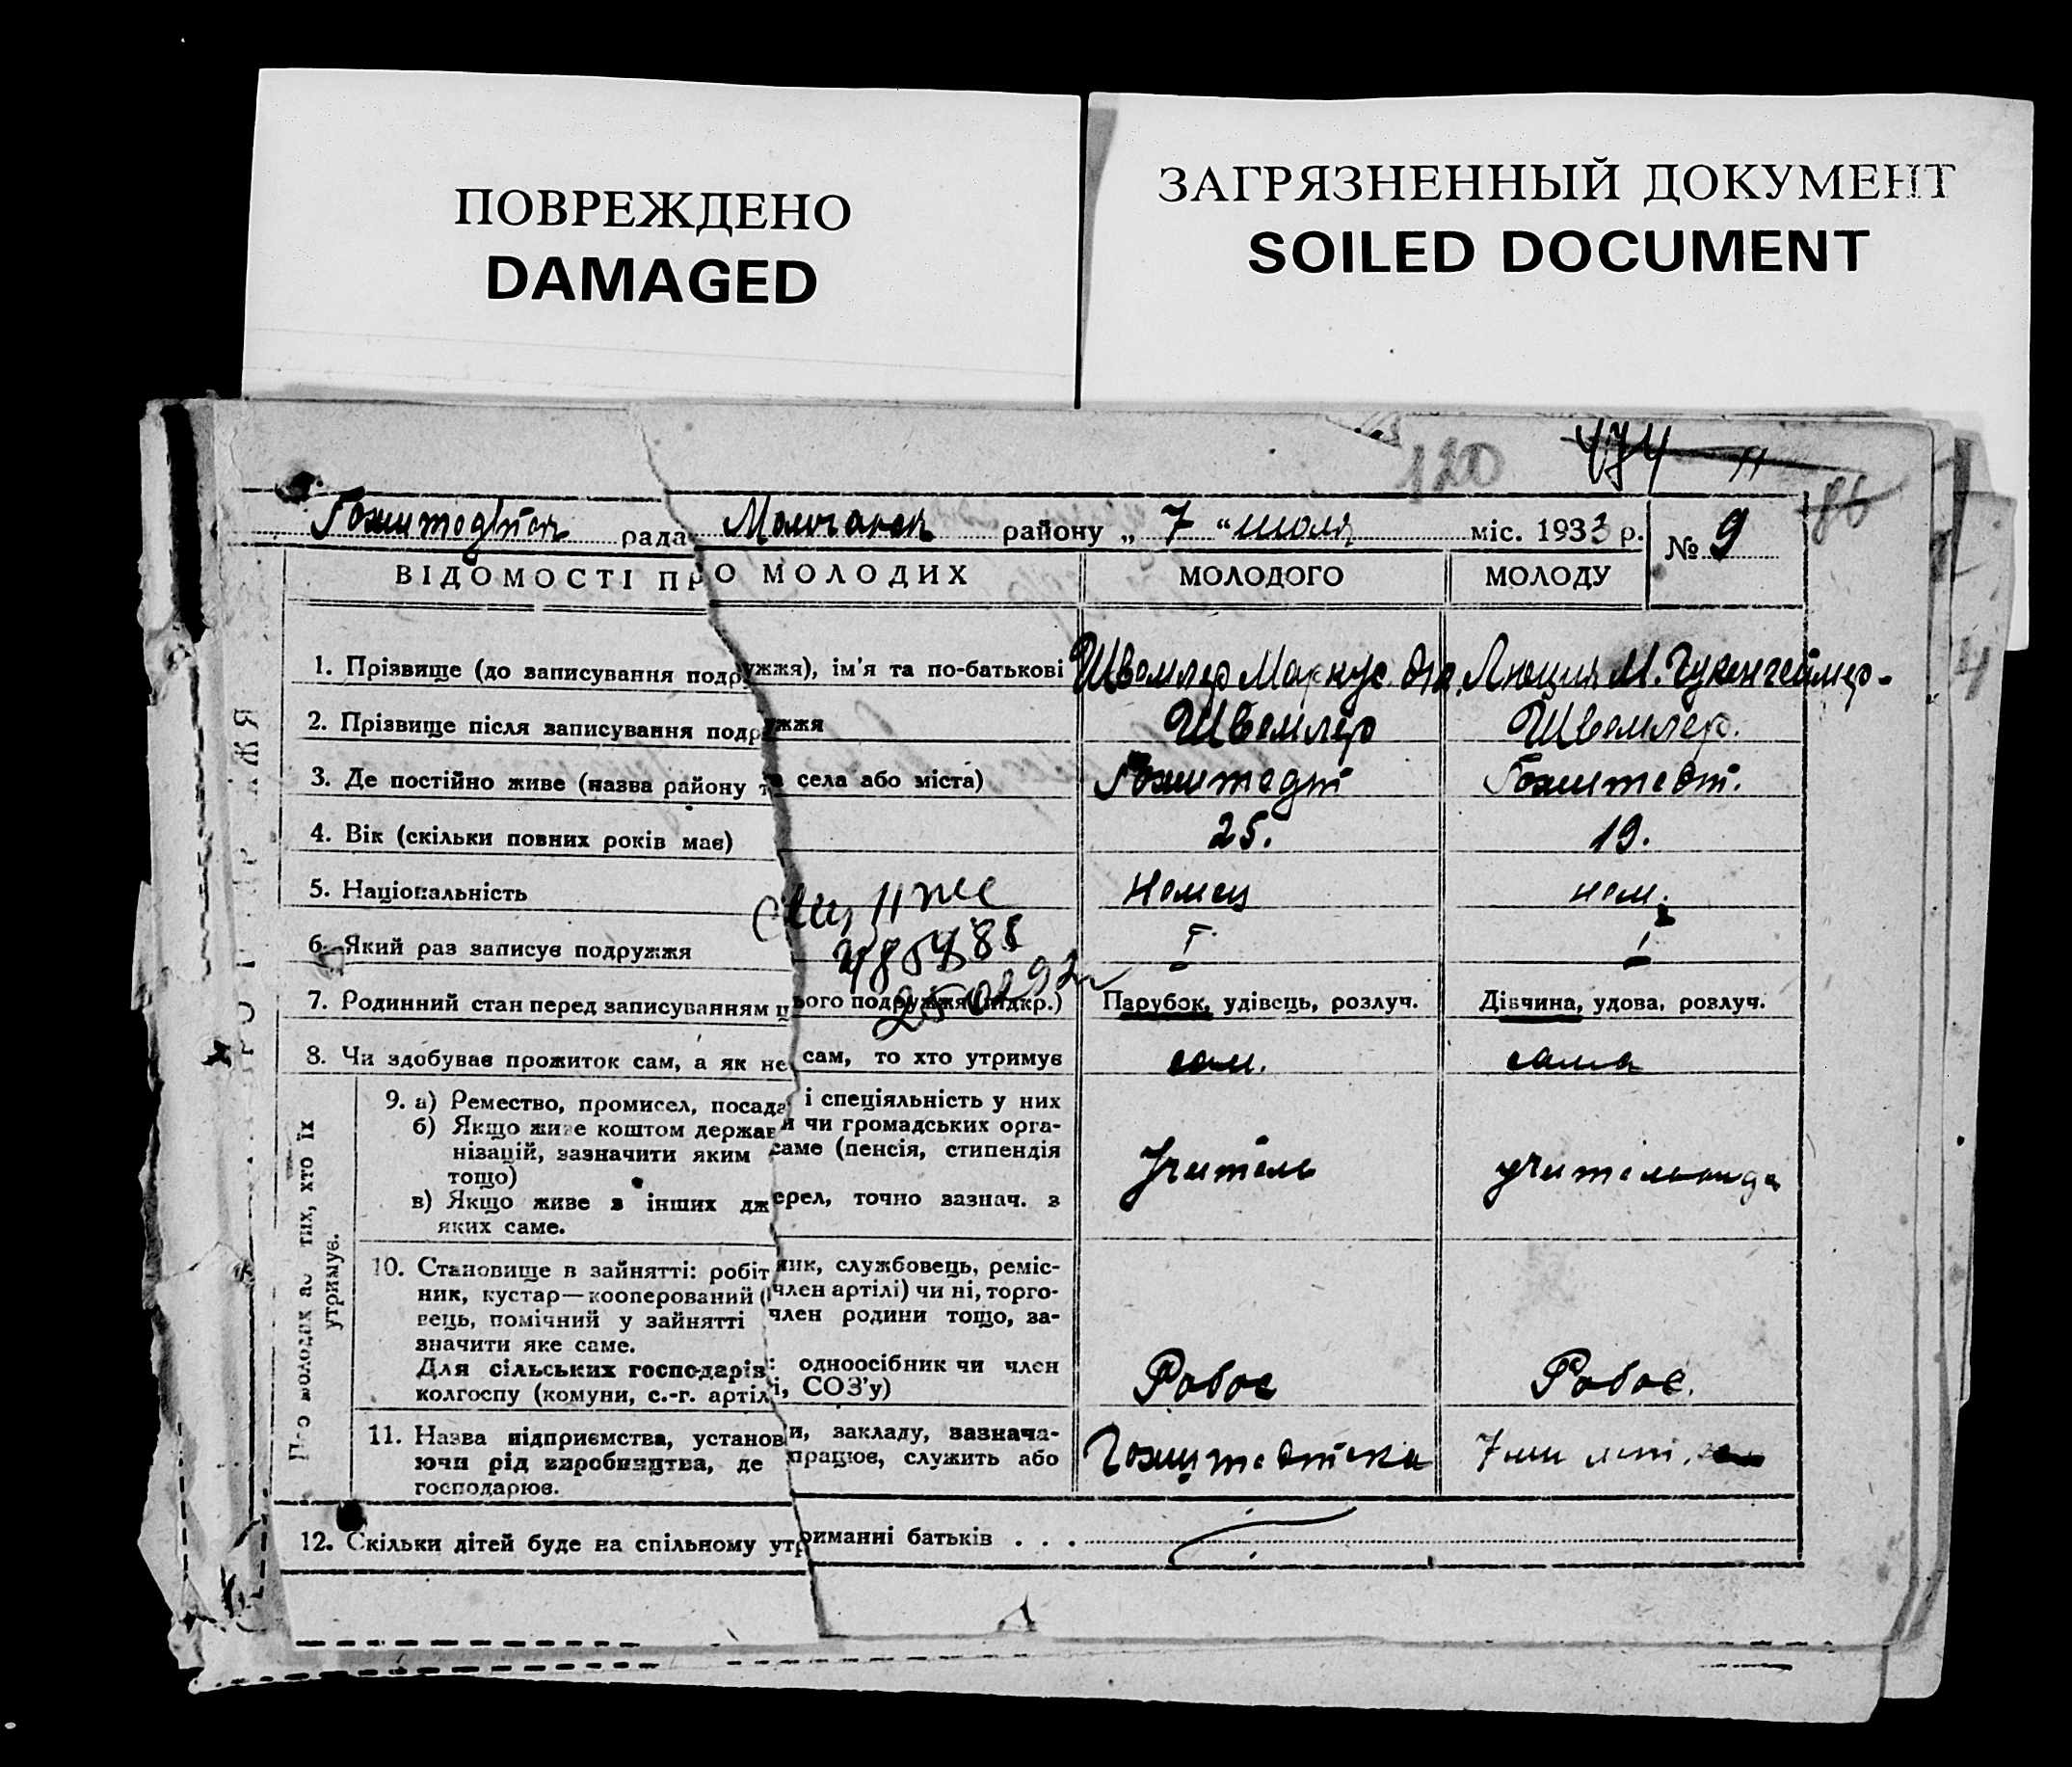 ПОВРЕЖДЕНО
DAMAGED
ЗАГРЯЗНЕННЫЙ ДОКУМЕНТ
SOILED DOCUMENT
120 474
86
рада Молочанск району „ 7 “ июля міс. 1933 р. № 9
ВІДОМОСТІ ПРО МОЛОДИХ МОЛОДОГО МОЛОДУ
1. Прізвище (до записування подружжя), ім'я та по-батькові Швемлер Маркус Люция М. Гукенгеймер-
2. Прізвище після записування подружжя Швемлер Швемлер.
3. Де постійно живе (назва району та села або міста) Гохштедт Гохштедт.
4. Вік (скільки повних років має) 25. 19.
5. Національність Немец нем.
6. Який раз записує подружжя I 1
7. Родинний стан перед записуванням цього подружжя (підкр.) Парубок, удівець, розлуч. Дівчина, удова, розлуч.
8. Чи здобуває прожиток сам, а як не сам, то хто утримує сам. сама
Про молодих або тих, хто їх утримує.
9. а) Ремество, промисел, посада і спеціяльність у них
б) Якщо живе коштом держави чи громадських орга-
нізацій, зазначити яким саме (пенсія, стипендія
тощо)
в) Якщо живе з інших джерел, точно зазнач. з
яких саме.
Учитель учительница
10. Становище в зайнятті: робітник, службовець, реміс-
ник, кустар—кооперований (член артілі) чи ні, торго-
вець, помічний у зайнятті член родини тощо, за-
значити яке саме.
Для сільських господарів: одноосібник чи член
колгоспу (комуни, с.-г. артілі, СОЗ'у)
Рабоч Рабоч.
11. Назва підприємства, установи, закладу, зазнача-
ючи рід виробництва, де працює, служить або
господарює.
Гохштедтска 7ми лет.
12. Скільки дітей буде на спільному утриманні батьків . . .